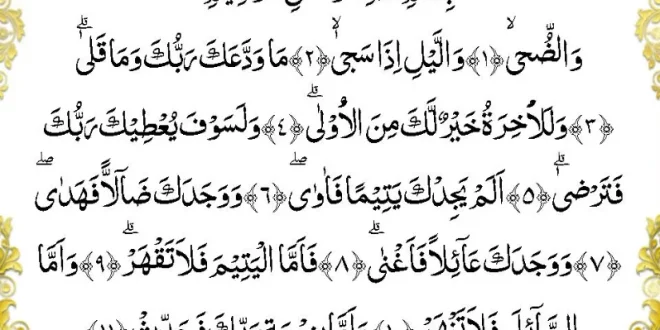 وَالضُّحٰىۙ ﴿١﴾ وَالَّيْلِ اِذَا سَجٰىۙ ﴿٢﴾ مَا وَدَّعَكَ رَبُّكَ وَمَا قَلٰىۗ
﴿٣﴾ وَلَلْاٰخِرَةُ خَيْرٌ لَّكَ مِنَ الْاُوْلٰىۗ ﴿٤﴾ وَلَسَوْفَ يُعْطِيْكَ رَبُّكَ
فَتَرْضٰىۗ ﴿٥﴾ اَلَمْ يَجِدْكَ يَتِيْمًا فَاٰوٰىۖ ﴿٦﴾ وَوَجَدَكَ ضَاۤلًّا فَهَدٰىۖ
﴿٧﴾ وَوَجَدَكَ عَاۤئِلًا فَاَغْنٰىۗ ﴿٨﴾ فَاَمَّا الْيَتِيْمَ فَلَا تَقْهَرْۗ ﴿٩﴾ وَاَمَّا